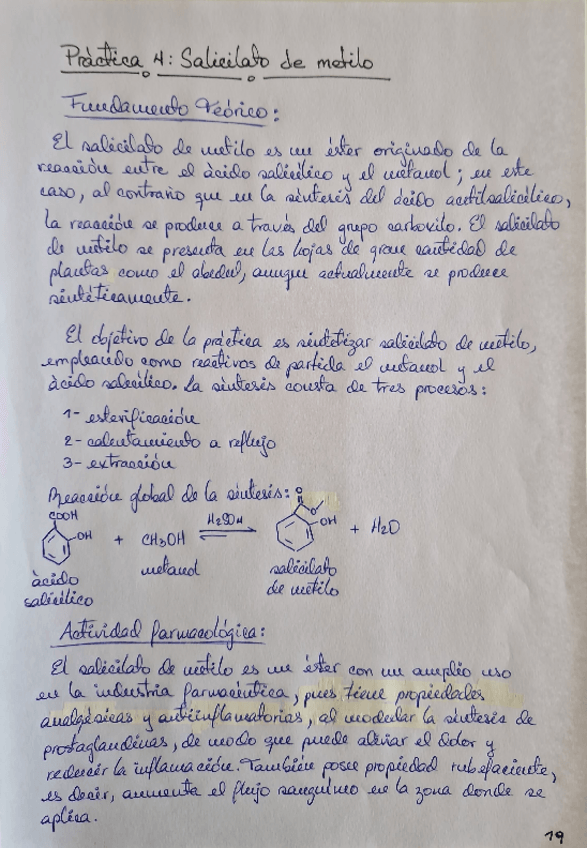 Pràctica 4: Salicilato de metilo
Fundamento Teórico:
El salicilato de metilo es un éster originado de la
reacción entre el àcido salicílico y el metanol; en este
caso, al contrario que en la síntesis del ácido acetilsalicílico,
la reacción se produce a través del grupo carboxilo. El salicilato
de metilo se presenta en las hojas de gran cantidad de
plantas como el abedul, aunque actualmente se produce
sintéticamente.
El objetivo de la pràctica es sintetizar salicilato de metilo,
empleando como reactivos de partida el metanol y el
àcido salicílico. La síntesis consta de tres procesos:
1- esterificación
2- calentamiento a reflujo
3- extracción
Reacción global de la síntesis:
COOH
OH + CH3OH H2SO4 O O OH + H2O
àcido salicílico
metanol
salicilato de metilo
Actividad farmacológica:
El salicilato de metilo es un éster con un amplio uso
en la industria farmacéutica, pues tiene propiedades
analgésicas y antiinflamatorias, al modular la síntesis de
prostaglandinas, de modo que puede aliviar el dolor y
reducir la inflamación. También posee propiedad rubefaciente,
es decir, aumenta el flujo sanguíneo en la zona donde se
aplica.
19